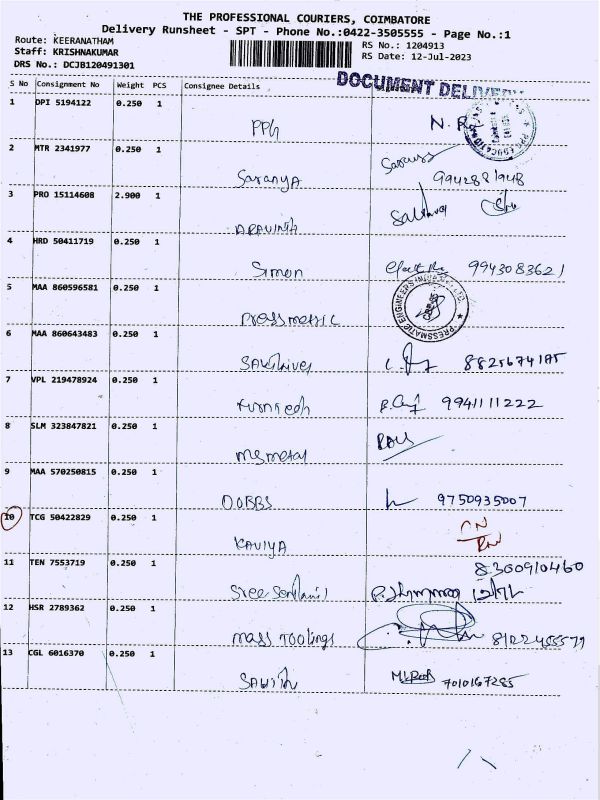 THE PROFESSIONAL COURIERS, COIMBATORE
Delivery Runsheet - SPT - Phone No.:0422-3505555 - Page No.:1
Route: KEERANATHAM
RS No.: 1204913
Staff: KRISHNAKUMAR
RS Date: 12-Jul-2023
DRS No.: DCJB120491301
DOCUMENT DELIVERY
S No Consignment No Weight PCS Consignee Details
1 DPI 5194122 0.250 1
PPG
2 MTR 2341977 0.250 1
Saranya 9942881948
3 PRO 15114608 2.900 1
ARAVINTH
4 HRD 50411719 0.250 1
Simon 9943083621
5 MAA 860596581 0.250 1
Pressmatric
PRESSMATIC ENGINEERS
6 MAA 860643483 0.250 1
8825674185
7 VPL 219478924 0.250 1
9941111222
8 SLM 323847821 0.250 1
msmetal
9 MAA 570250815 0.250 1
DOBBS 9750935007
10 TCG 50422829 0.250 1
KAVIYA
11 TEN 7553719 0.250 1
8300910460
Sree Senthamil
12 HSR 2789362 0.250 1
mass Toolings
13 CGL 6016370 0.250 1
7010167285